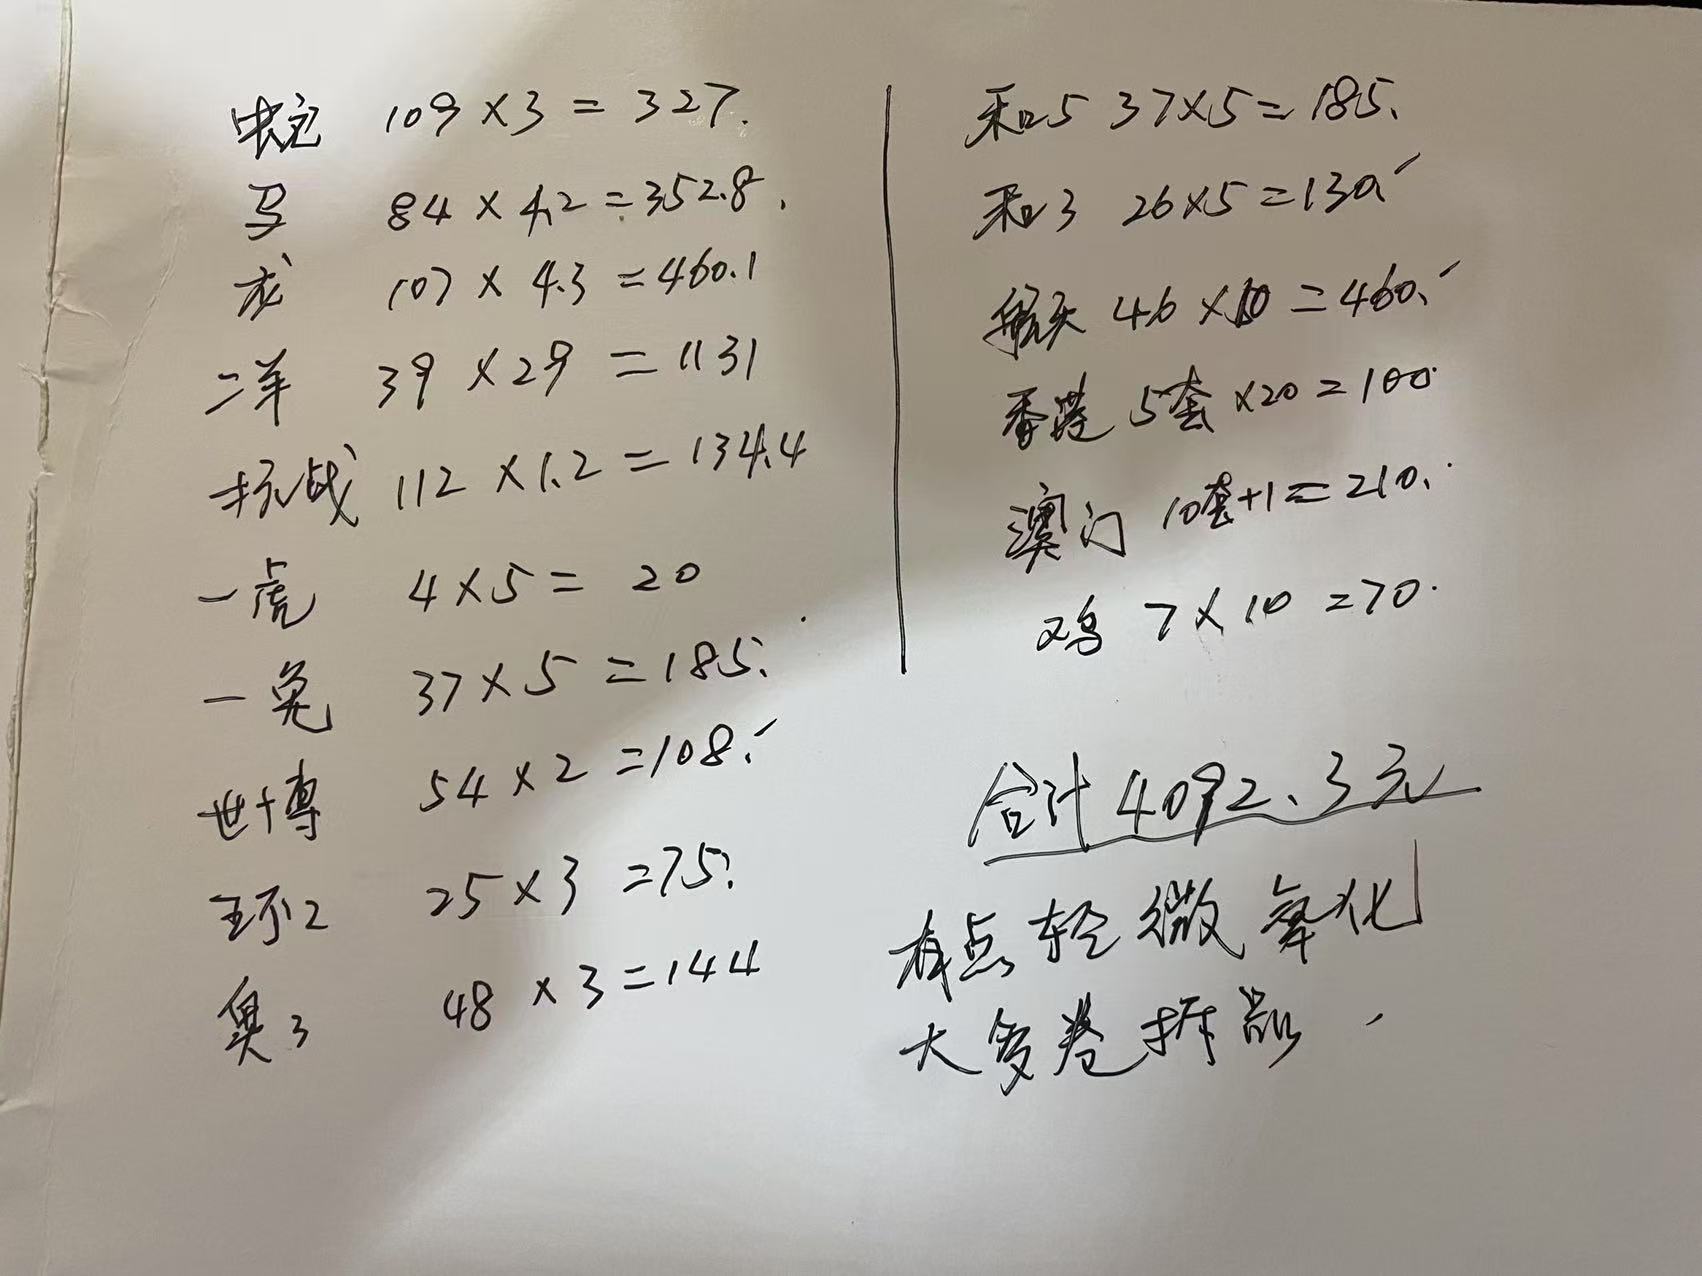 109×3=327.
马 84×4.2=352.8.
龙 107×4.3=460.1
二羊 39×29=1131
抗战 112×1.2=134.4
一虎 4×5=20
一兔 37×5=185.
世博 54×2=108.
环2 25×3=75.
奥3 48×3=144
和5 37×5=185.
和3 26×5=130.
航天 46×10=460.
香港 5套×20=100.
澳门 10套+1=210.
鸡 7×10=70.
合计4092.3元
有点轻微氧化
大多卷拆品.